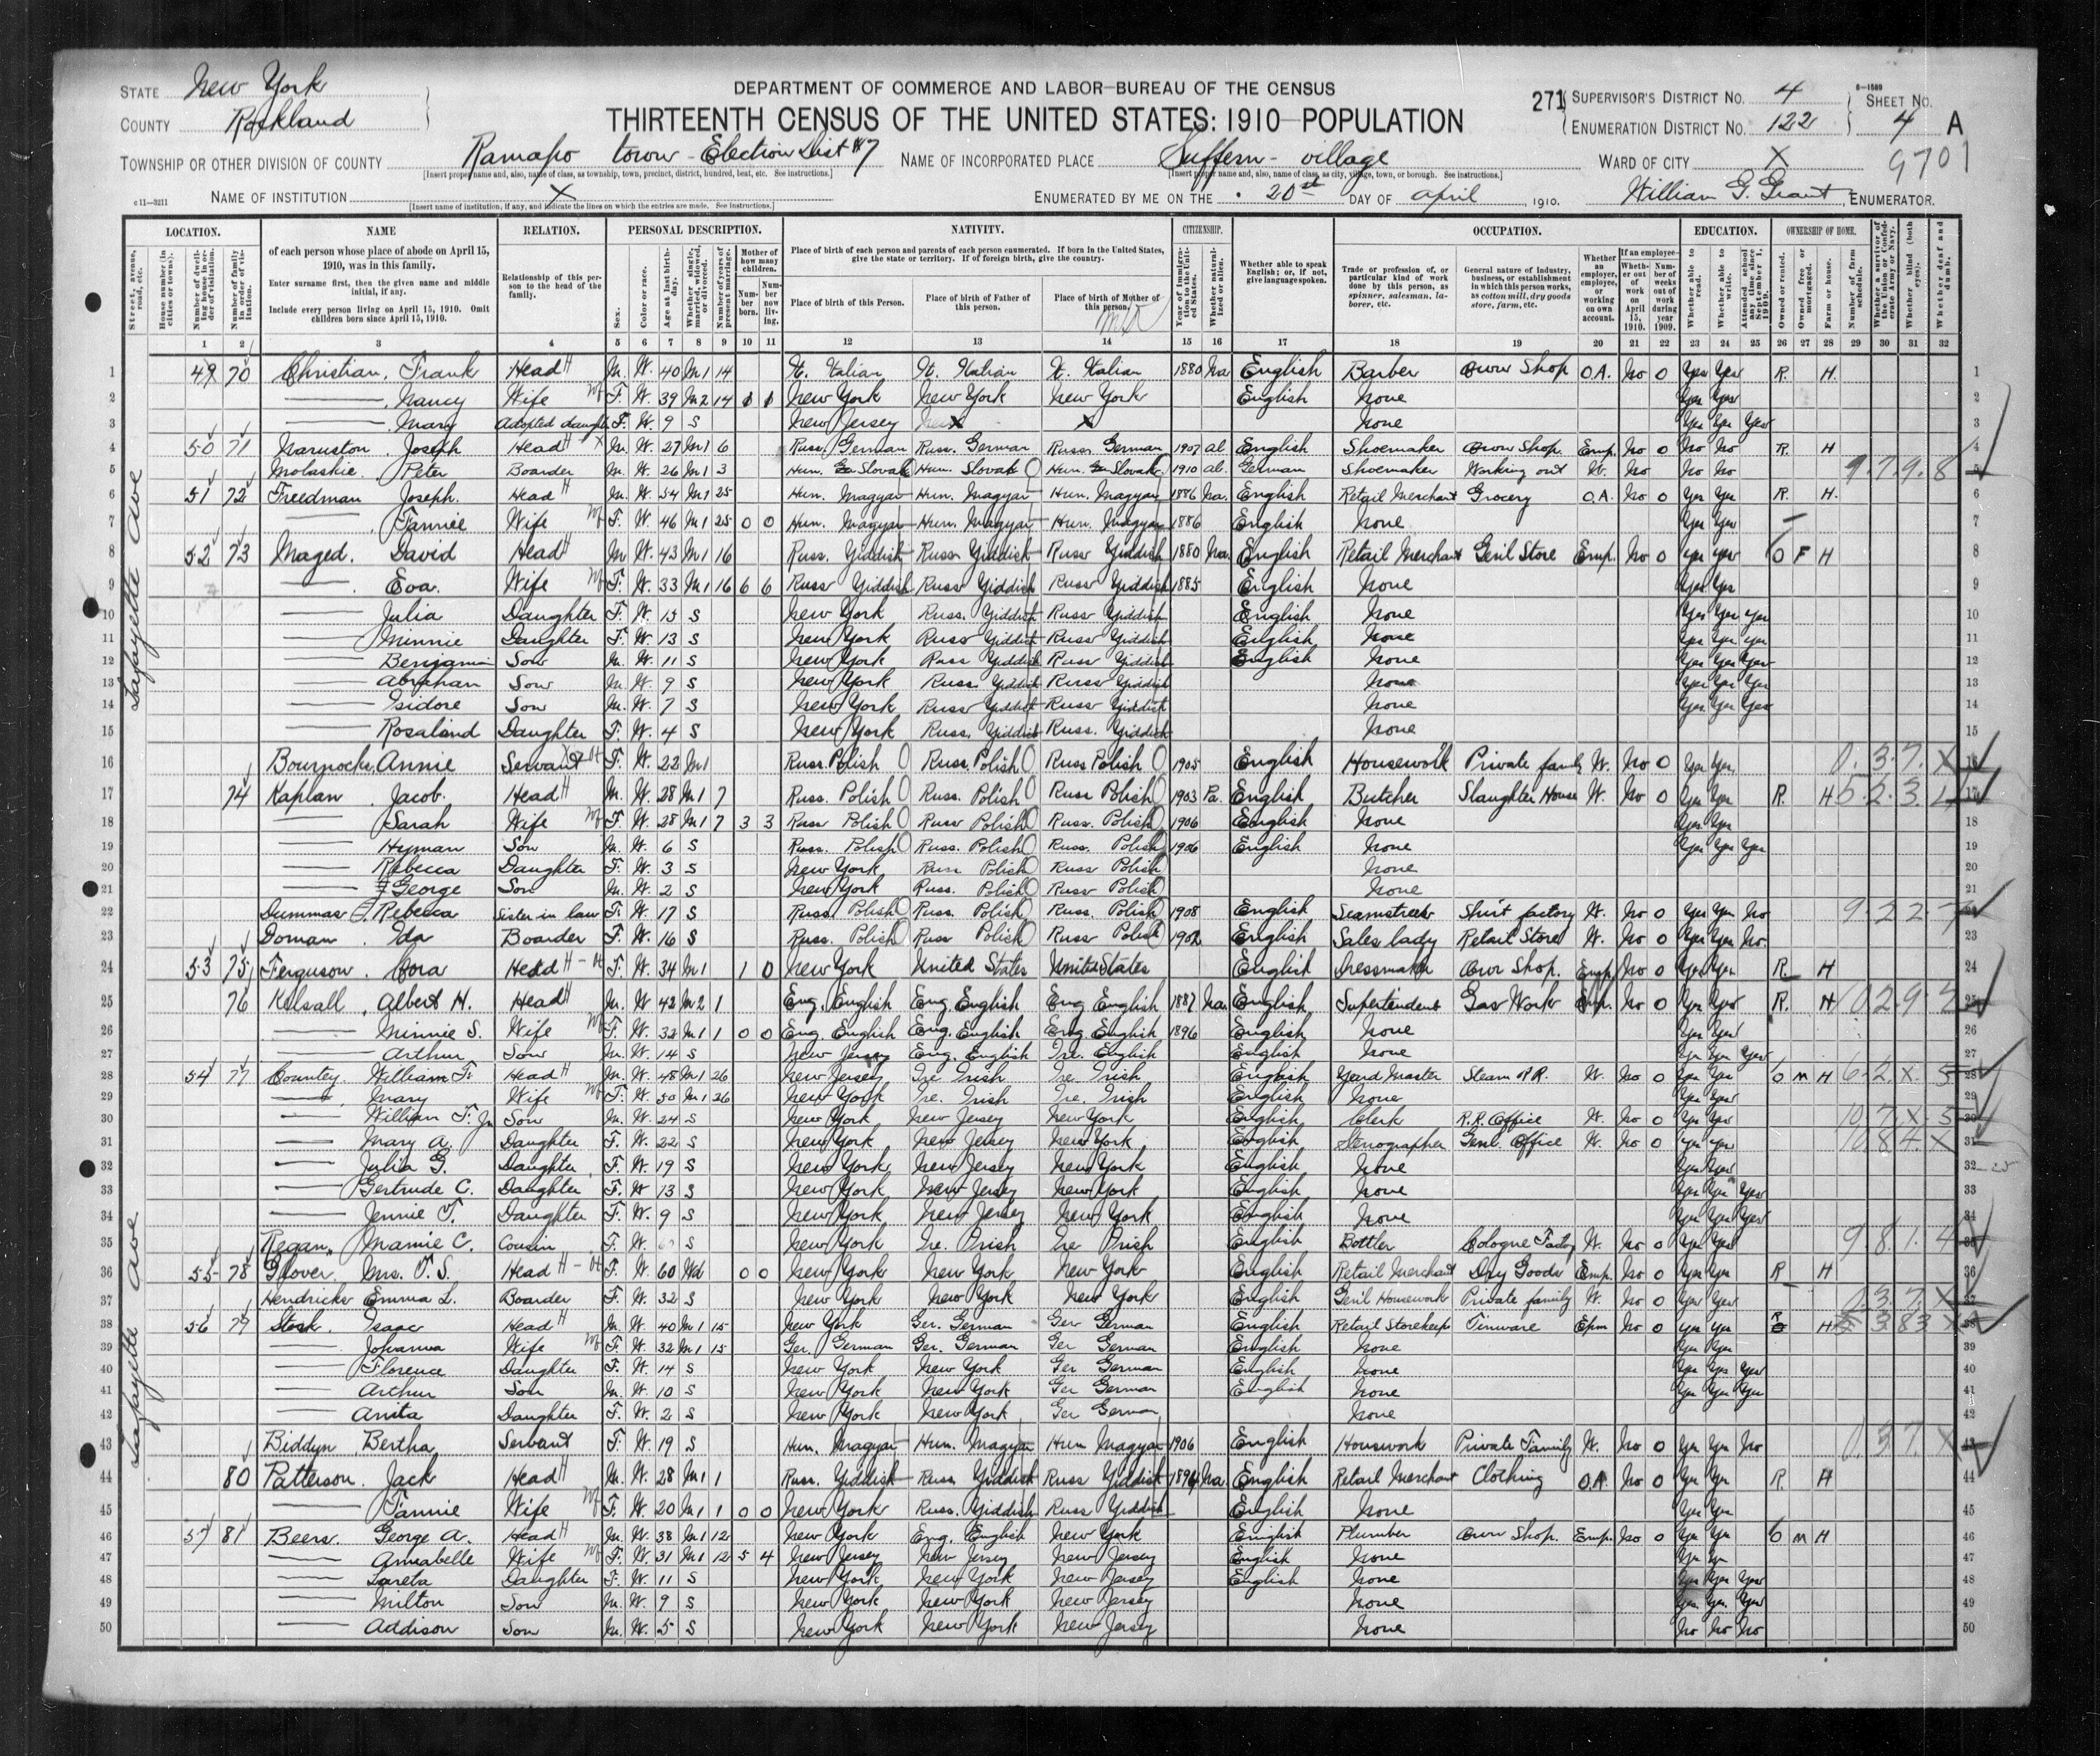 STATE New York
COUNTY Rockland
DEPARTMENT OF COMMERCE AND LABOR—BUREAU OF THE CENSUS
THIRTEENTH CENSUS OF THE UNITED STATES: 1910—POPULATION
271 SUPERVISOR'S DISTRICT No. 4 SHEET No.
ENUMERATION DISTRICT No. 122 4 A
8—1589
9701
TOWNSHIP OR OTHER DIVISION OF COUNTY Ramapo town - Election Dist #7 NAME OF INCORPORATED PLACE Suffern - village WARD OF CITY X
[Insert proper name and, also, name of class, as township, town, precinct, district, hundred, beat, etc. See instructions.] [Insert proper name and, also, name of class, as city, village, town, or borough. See instructions.]
c 11—3211 NAME OF INSTITUTION X ENUMERATED BY ME ON THE 20st DAY OF April, 1910. William G. Grant, ENUMERATOR.
[Insert name of institution, if any, and indicate the lines on which the entries are made. See instructions.]
LOCATION. NAME RELATION. PERSONAL DESCRIPTION. NATIVITY. CITIZENSHIP. OCCUPATION. EDUCATION. OWNERSHIP OF HOME.
of each person whose place of abode on April 15, 1910, was in this family.
Enter surname first, then the given name and middle initial, if any.
Include every person living on April 15, 1910. Omit children born since April 15, 1910.
Relationship of this person to the head of the family.
Place of birth of each person and parents of each person enumerated. If born in the United States, give the state or territory. If of foreign birth, give the country.
Place of birth of this Person. Place of birth of Father of this person. Place of birth of Mother of this person.
Whether able to speak English; or, if not, give language spoken.
Trade or profession of, or particular kind of work done by this person, as spinner, salesman, laborer, etc.
General nature of industry, business, or establishment in which this person works, as cotton mill, dry goods store, farm, etc.
1 2 3 4 5 6 7 8 9 10 11 12 13 14 15 16 17 18 19 20 21 22 23 24 25 26 27 28 29 30 31 32
Lafayette Ave
1 49 70 Christian, Frank Head M. W. 40 M1 14 It. Italian It. Italian It. Italian 1880 Na English Barber Own Shop O.A. No 0 Yes Yes R. H. 1
2 Nancy Wife F. W. 39 M2 14 New York New York New York English None Yes Yes 2
3 Mary Adopted daughter F. W. 9 S New Jersey X X None Yes Yes Yes 3
4 50 71 Joseph Head M. W. 27 M1 6 Russ. German Russ. German Russ. German 1907 al English Shoemaker Own Shop Emp. No 0 No No R. H 4
5 Molaskie Peter Boarder M. W. 26 M1 3 Hun. Slovak Hun. Slovak Hun. Slovak 1910 al. German Shoemaker Working out W. No No No 9.7.9.8 5
6 51 72 Freedman Joseph. Head M. W. 54 M1 25 Hun. Magyar Hun. Magyar Hun. Magyar 1886 Na. English Retail Merchant Grocery O.A. No 0 Yes Yes R. H. 6
7 Fannie Wife F. W. 46 M1 25 0 0 Hun. Magyar Hun. Magyar Hun. Magyar 1886 English None Yes Yes 7
8 52 73 Maged. David Head M W. 43 M1 16 Russ. Yiddish Russ Yiddish Russ Yiddish 1880 Na. English Retail Merchant Gen'l Store Emp. No 0 Yes Yes O F H 8
9 Eva. Wife F. W. 33 M1 16 6 6 Russ Yiddish Russ Yiddish Russ Yiddish 1885 English None Yes Yes 9
10 Julia Daughter F. W. 15 S New York Russ. Yiddish Russ Yiddish English None Yes Yes Yes 10
11 Minnie Daughter F. W. 13 S New York Russ Yiddish Russ Yiddish English None Yes Yes Yes 11
12 Benjamin Son M. W. 11 S New York Russ Yiddish Russ Yiddish English None Yes Yes Yes 12
13 Abraham Son M. W. 9 S New York Russ Yiddish Russ Yiddish None Yes Yes Yes 13
14 Isidore Son M. W. 7 S New York Russ Yiddish Russ Yiddish None Yes Yes Yes 14
15 Rosaland Daughter F. W. 4 S New York Russ. Yiddish Russ. Yiddish None 15
16 Annie Servant F. W. 22 M1 Russ. Polish Russ. Polish Russ Polish 1905 English Housework Private family W. No 0 Yes Yes 0.3.7.X 16
17 74 Kaplan, Jacob. Head M. W. 28 M1 7 Russ. Polish Russ. Polish Russ Polish 1903 Pa. English Butcher Slaughter House W. No 0 Yes Yes R. H 5.2.3.4 17
18 Sarah Wife F. W. 28 M1 7 3 3 Russ Polish Russ Polish Russ. Polish 1906 English None Yes Yes 18
19 Hyman Son M. W. 6 S Russ. Polish Russ. Polish Russ. Polish 1906 English None Yes Yes Yes 19
20 Rebecca Daughter F. W. 3 S New York Russ Polish Russ Polish None 20
21 George Son M. W. 2 S New York Russ. Polish Russ Polish None 21
22 Dummas Rebecca Sister in law F. W. 17 S Russ. Polish Russ. Polish Russ. Polish 1908 English Seamstress Shirt factory W. No 0 Yes Yes No 9.2.2.7 22
23 Doman, Ida Boarder F. W. 16 S Russ. Polish Russ Polish Russ Polish 1902 English Sales lady Retail Store W. No 0 Yes Yes No. 23
24 53 75 Ferguson, Cora Head F. W. 34 M1 1 0 New York United States United States English Dressmaker Own Shop. Emp. No 0 Yes Yes R. H 24
25 76 Kelsall, Albert H. Head M. W 42 M2 1 Eng. English Eng. English Eng English 1887 Na. English Supertendent Gas Work Emp. No 0 Yes Yes R. H 10.2.9.7 25
26 Minnie S. Wife F. W. 32 M1 1 0 0 Eng. English Eng. English Eng English 1896 English None Yes Yes 26
27 Arthur Son M. W. 14 S New Jersey Eng. English Ire. English English None Yes Yes Yes 27
28 54 77 Countey. William F. Head M. W. 48 M1 26 New Jersey Ire Irish Ire. Irish English Yard Master Steam RR. W. No 0 Yes Yes O M H 6.2.X.5 28
29 Mary Wife F. W. 50 M1 26 New York Ire. Irish Ire. Irish English None Yes Yes 29
30 William F. Jr Son M. W. 24 S New York New Jersey New York English Clerk R.R. Office W. No 0 Yes Yes 10.7.X.5 30
31 Mary A. Daughter F. W. 22 S New York New Jersey New York English Stenographer Genl. Office W. No 0 Yes Yes 10.8.4.X 31
32 Julia G. Daughter F. W. 19 S New York New Jersey New York English None Yes Yes 32
33 Gertrude C. Daughter F. W. 13 S New York New Jersey New York English None Yes Yes Yes 33
34 Jennie T. Daughter F. W. 9 S New York New Jersey New York English None Yes Yes Yes 34
35 Regan, Mamie C. Cousin F. W. S New York Ire. Irish Ire Irish English Bottler Cologne Factory W. No 0 Yes Yes 9.8.1.4 35
36 55 78 Glover. Mrs. T. S. Head F. W. 60 Wd 0 0 New York New York New York English Retail Merchant Dry Goods Emp. No 0 Yes Yes R H 36
37 Hendricks Emma L. Boarder F. W. 32 S New York New York New York English Gen'l Housework Private family W. No 0 Yes Yes 0.3.7.X 37
38 56 79 Isaac Head M. W. 40 M1 15 New York Ger. German Ger German English Retail Storekeeper Tinware Epm No 0 Yes Yes R H 38
39 Johanna Wife F. W. 32 M1 15 Ger. German Ger. German Ger German English None Yes Yes 39
40 Florence Daughter F. W. 14 S New York New York Ger German English None Yes Yes Yes 40
41 Arthur Son M. W. 10 S New York New York Ger German English None Yes Yes Yes 41
42 Anita Daughter F. W. 2 S New York New York Ger German None 42
43 Biddyn Bertha Servant F. W. 19 S Hun. Magyar Hun. Magyar Hun Magyar 1906 English Housework Private Family W. No 0 Yes Yes No 0.3.7.X 43
44 80 Patterson. Jack Head M. W. 28 M1 1 Russ. Yiddish Russ Yiddish Russ Yiddish 1896 Na. English Retail Merchant Clothing O.A. No 0 Yes Yes R. H 44
45 Fannie Wife F. W. 20 M1 1 0 0 New York Russ. Yiddish Russ Yiddish English None Yes Yes 45
46 57 81 Beers. George A. Head M. W. 38 M1 12 New York Eng. English New York English Plumber Own Shop. Emp. No 0 Yes Yes O M H 46
47 Annabelle Wife F. W. 31 M1 12 5 4 New Jersey New Jersey New Jersey English None Yes Yes 47
48 Loreta Daughter F. W. 11 S New York New York New Jersey English None Yes Yes Yes 48
49 Milton Son M. W. 9 S New York New York New Jersey None Yes Yes Yes 49
50 Addison Son M. W. 5 S New York New York New Jersey None No No No 50
Lafayette Ave